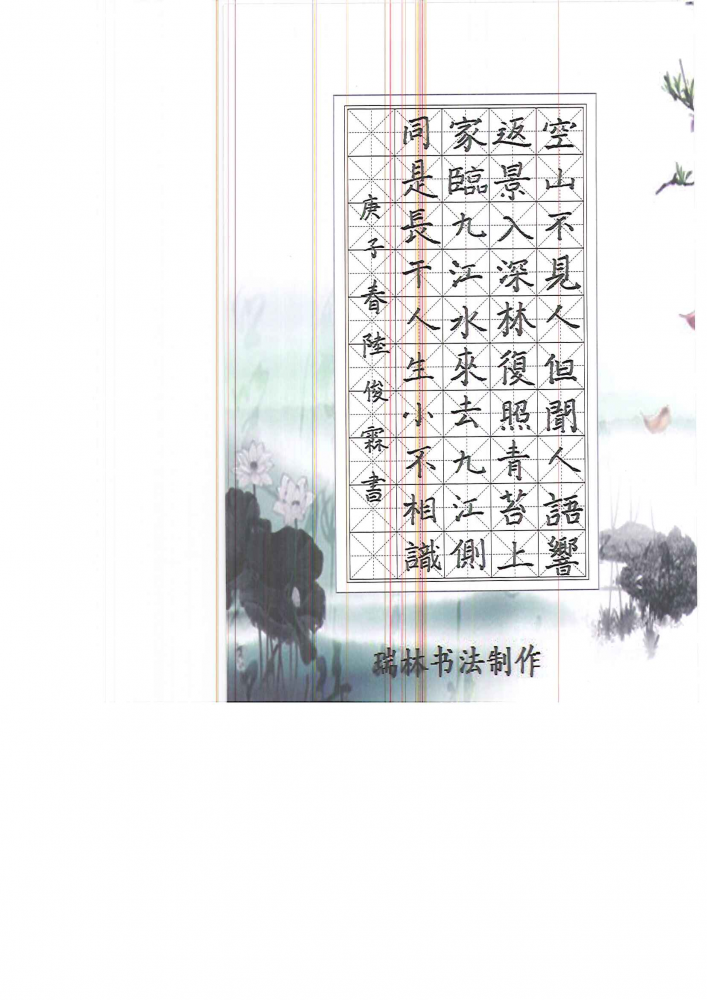 空山不見人但聞人語響
返景入深林復照青苔上
家臨九江水來去九江側
同是長干人生小不相識
庚子春陸俊霖書
瑞林书法制作